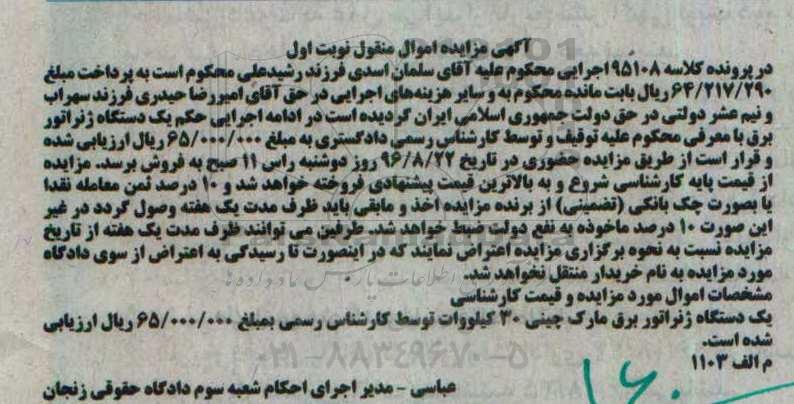 آگهی مزایده اموال منقول نوبت اول
در پرونده کلاسه ۹۵۱۰۸ اجرایی محکوم علیه آقای سلمان اسدی فرزند رشیدعلی محکوم است به پرداخت مبلغ
۶۴/۲۱۷/۲۹۰ ریال بابت مانده محکوم به و سایر هزینه‌های اجرایی در حق آقای امیررضا حیدری فرزند سهراب
و نیم عشر دولتی در حق دولت جمهوری اسلامی ایران گردیده است در ادامه اجرایی حکم یک دستگاه ژنراتور
برق با معرفی محکوم علیه توقیف و توسط کارشناس رسمی دادگستری به مبلغ ۶۵/۰۰۰/۰۰۰ ریال ارزیابی شده
و قرار است از طریق مزایده حضوری در تاریخ ۹۶/۸/۲۲ روز دوشنبه راس ۱۱ صبح به فروش برسد. مزایده
از قیمت پایه کارشناسی شروع و به بالاترین قیمت پیشنهادی فروخته خواهد شد و ۱۰ درصد ثمن معامله نقدا
یا بصورت چک بانکی (تضمینی) از برنده مزایده اخذ و مابقی باید ظرف مدت یک هفته وصول گردد در غیر
این صورت ۱۰ درصد ماخوذه به نفع دولت ضبط خواهد شد. طرفین می توانند ظرف مدت یک هفته از تاریخ
مزایده نسبت به نحوه برگزاری مزایده اعتراض نمایند که در اینصورت تا رسیدگی به اعتراض از سوی دادگاه
مورد مزایده به نام خریدار منتقل نخواهد شد.
مشخصات اموال مورد مزایده و قیمت کارشناسی
یک دستگاه ژنراتور برق مارک چینی ۳۰ کیلووات توسط کارشناس رسمی بمبلغ ۶۵/۰۰۰/۰۰۰ ریال ارزیابی
شده است.
م الف ۱۱۰۳
۰۲۱-۸۸۳۴۹۶۷۰-۵
عباسی - مدیر اجرای احکام شعبه سوم دادگاه حقوقی زنجان